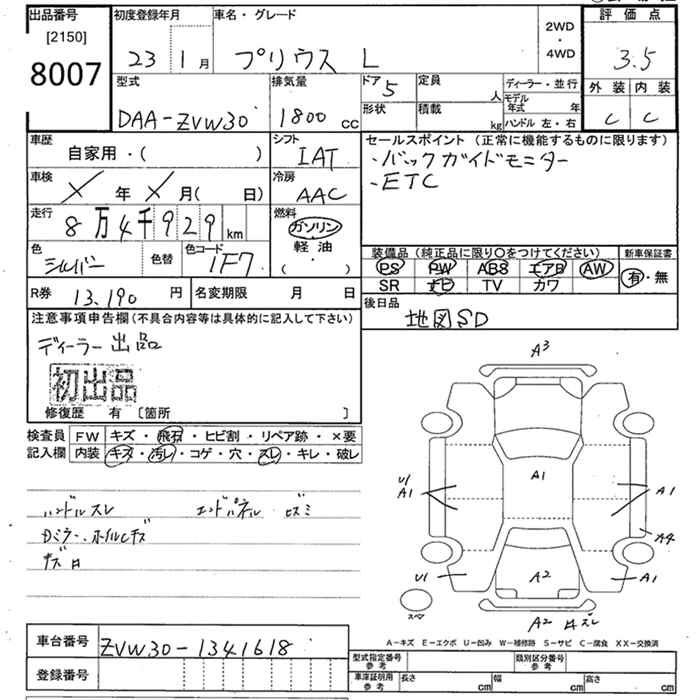 出品番号 初度登録年月 車名・グレード 評価点
[2150] 2WD
8007 23 1月 プリウス L ・ 3.5
4WD
型式 排気量 ドア 5 定員 人 ディーラー・並行 外装 内装
DAA-ZVW30 1800 cc 形状 積載 kg モデル年式 年 C C
ハンドル 左・右
車歴 シフト セールスポイント(正常に機能するものに限ります)
自家用・( ) IAT ・バックガイドモニター
車検 冷房 ・ETC
X 年 X 月( 日) AAC
走行 燃料
8万4千929 km ガソリン
色 色替 色コード 軽油 装備品(純正品に限り○をつけてください) 新車保証書
シルバー 1F7 ・( ) PS PW ABS エアB AW 有・無
SR ナビ TV カワ
R券 13,190 円 名変期限 月 日 後日品
注意事項申告欄(不具合内容等は具体的に記入して下さい) 地図SD
ディーラー出品
初出品
修復歴 有 〔箇所 〕
検査員 FW キズ・飛石・ヒビ割・リペア跡・×要
記入欄 内装 キズ・汚レ・コゲ・穴・スレ・キレ・破レ
ハンドルスレ エンドパネル ヒズミ
ホイルキズ
A3
A1
U1
A1 A1
A4
U1 A2 A1
スペア
A2 スレ
A-キズ E-エクボ U-凹み W-補修跡 S-サビ C-腐食 XX-交換済
車台番号 ZVW30-1341618
登録番号 型式指定番号 参考 類別区分番号 参考
車庫証明用 参考 長さ cm 幅 cm 高さ cm